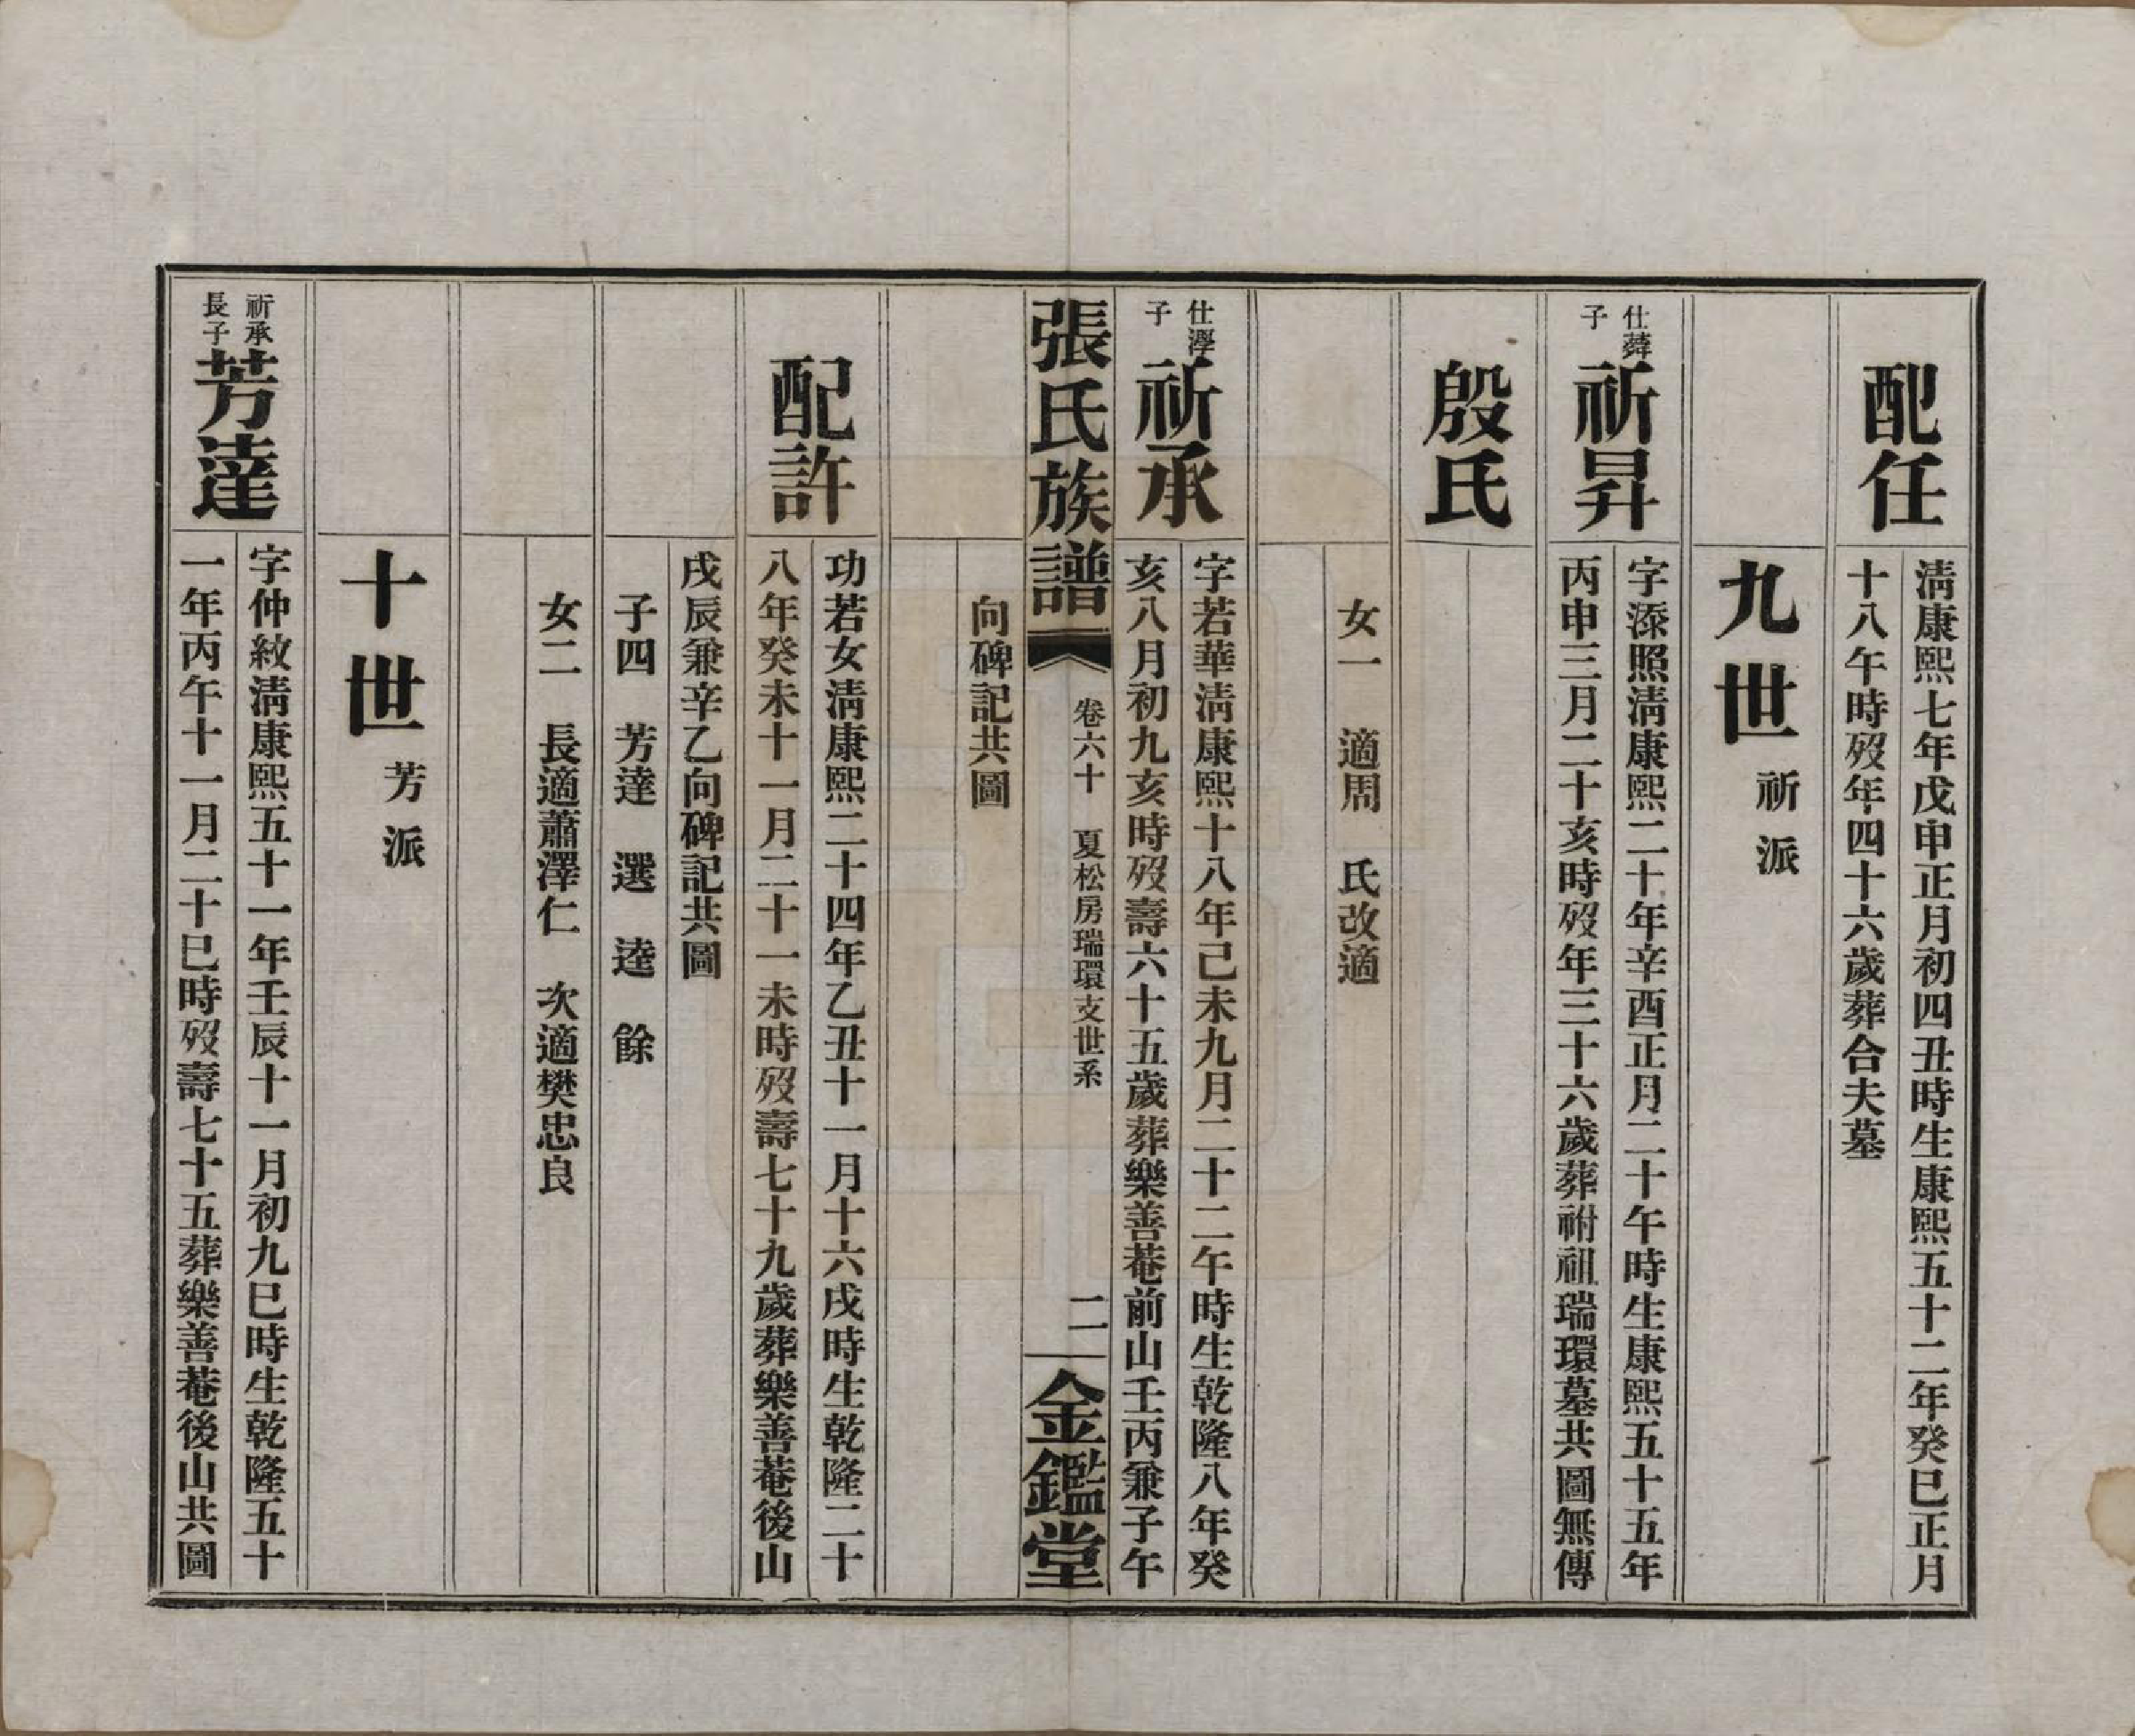 配任
淸康熙七年戊申正月初四丑時生康熙五十二年癸巳正月
十八午時歿年四十六歲葬合夫墓
九世 祈派
仕薭
子
祈昇
字添照淸康熙二十年辛酉正月二十午時生康熙五十五年
丙申三月二十亥時歿年三十六歲葬祔祖瑞環墓共圖無傳
殷氏
女一 適周 氏改適
仕㵀
子
祈承
字若華淸康熙十八年己未九月二十二午時生乾隆八年癸
亥八月初九亥時歿壽六十五歲葬樂善菴前山壬丙兼子午
張氏族譜
卷六十 夏松房瑞環支世系
二
金鑑堂
向碑記共圖
配許
功若女淸康熙二十四年乙丑十一月十六戌時生乾隆二十
八年癸未十一月二十一未時歿壽七十九歲葬樂善菴後山
戌辰兼辛乙向碑記共圖
子四 芳達 選 逵 餘
女二 長適蕭澤仁 次適樊忠良
十世 芳派
祈承
長子
芳達
字仲紋淸康熙五十一年壬辰十一月初九巳時生乾隆五十
一年丙午十一月二十巳時歿壽七十五葬樂善菴後山共圖